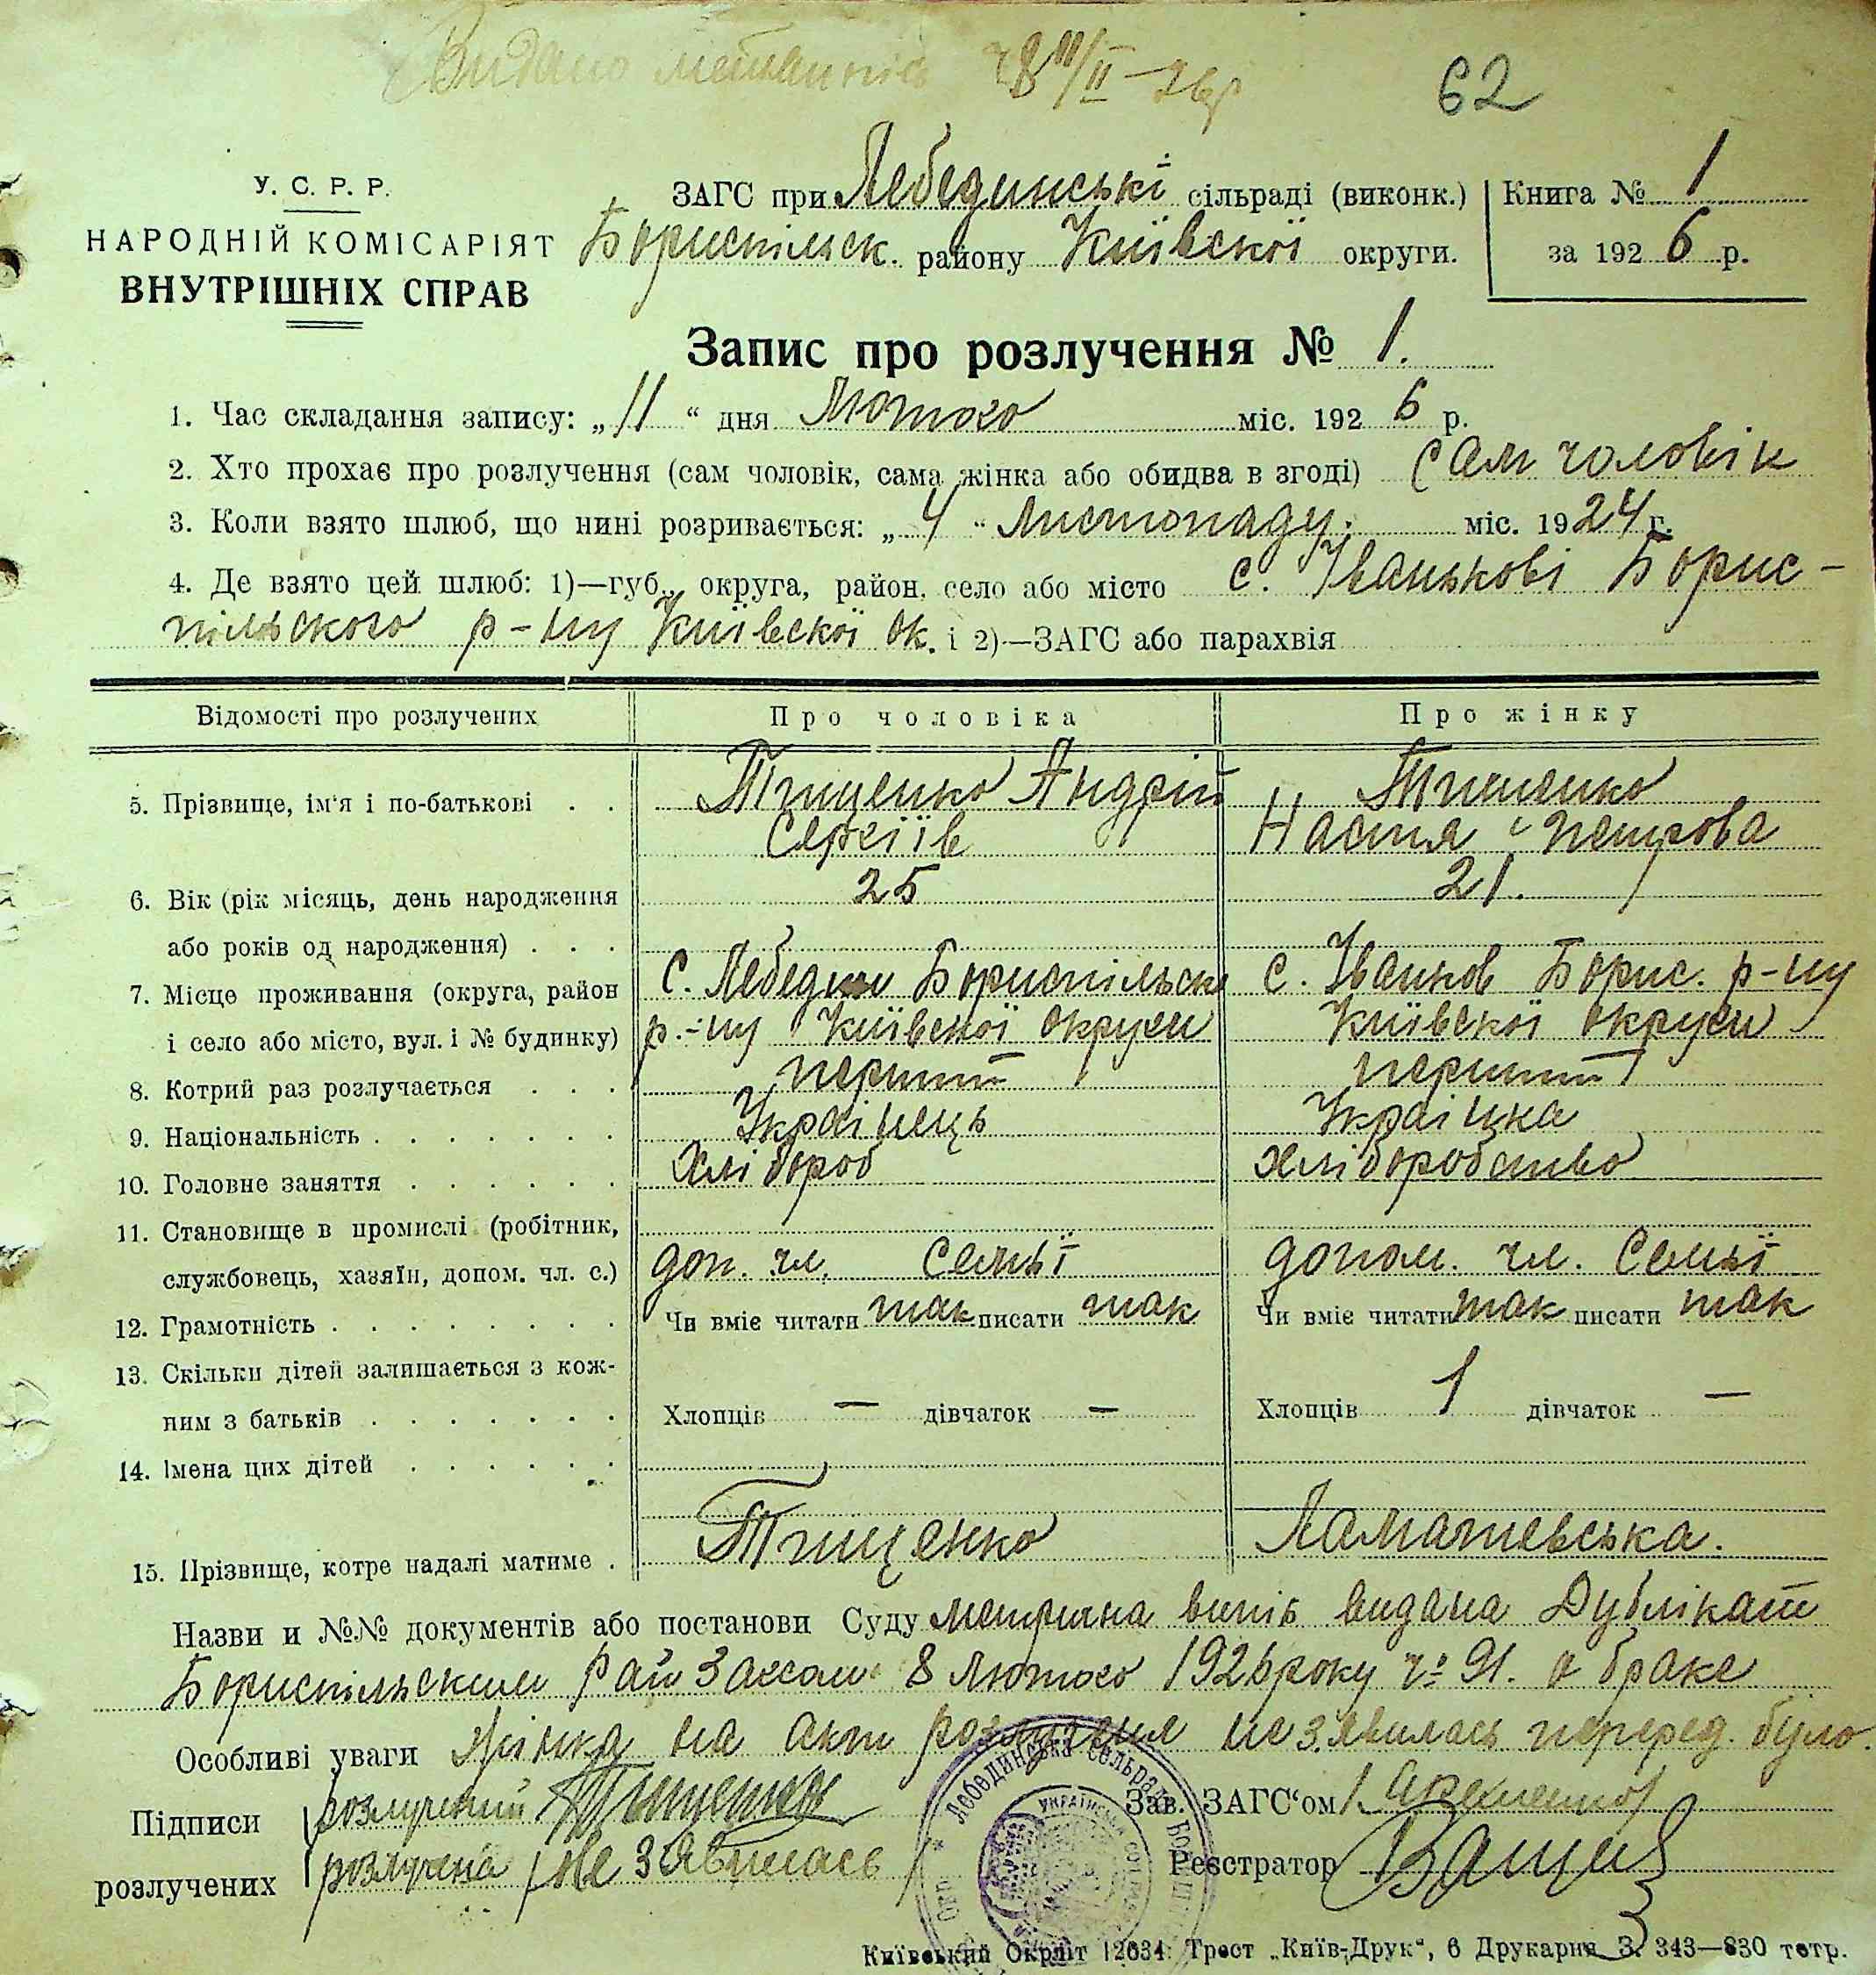 Видано 28 11/II-26р
62
У. С. Р. Р.
НАРОДНІЙ КОМІСАРІЯТ
ВНУТРІШНІХ СПРАВ
ЗАГС при Лебединські сільраді (виконк.)
Бориспільск. району Київскої округи.
Книга № 1
за 1926 р.
Запис про розлучення № 1.
1. Час складання запису: „11“ дня Лютого міс. 1926 р.
2. Хто прохає про розлучення (сам чоловік, сама жінка або обидва в згоді) Сам чоловік
3. Коли взято шлюб, що нині розривається: „4“ Листопаду. міс. 1924 г.
4. Де взято цей шлюб: 1)—губ., округа, район, село або місто с. Іванькові Борис-
пільського р-ну Київскої ок. і 2)—ЗАГС або парахвія
Відомості про розлучених Про чоловіка Про жінку
5. Прізвище, ім'я і по-батькові . . Тищенко Андрій Тищенко
Сергіїв Настя Петрова
6. Вік (рік місяць, день народження 25 21.
або років од народження) . . .
7. Місце проживання (округа, район с. Лебедин Бориспільск с. Іванков Борис. р-ну
і село або місто, вул. і № будинку) р.-ну Київскої округи Київскої округи
8. Котрий раз розлучається . . . перший перший
9. Національність . . . . . . . Українець Українка
10. Головне заняття . . . . . . Хлібороб хліборобство
11. Становище в промислі (робітник,
службовець, хазяїн, допом. чл. с.) доп. чл. семьї допом. чл. семьї
12. Грамотність . . . . . . . . Чи вміє читати так писати так Чи вміє читати так писати так
13. Скільки дітей залишається з кож-
ним з батьків . . . . . . . Хлопців — дівчаток — Хлопців 1 дівчаток —
14. Імена цих дітей . . . . . .
15. Прізвище, котре надалі матиме . Тищенко Ламашевська.
Назви и №№ документів або постанови Суду метрична випісь видана Дублікат
Бориспільским РайЗагсом 8 Лютого 1926 року ч: 91. о браке
Особливі уваги Жінка на акт розлучення не зявилась перед. було.
Підписи розлучених
розлучений Тищенко
розлучена не зявилась
Зав. ЗАГС“ом
Реєстратор
Лебединська сільрада
Київський Окрліт 12634. Трест „Київ-Друк“, 6 Друкарня З. 343—830 тетр.